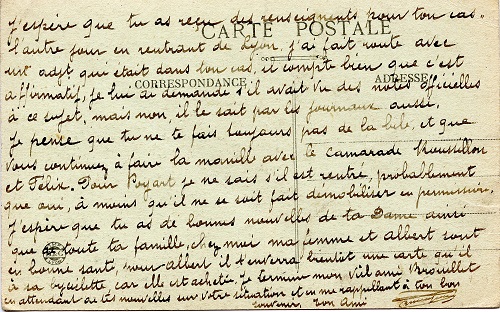 J'espère que tu as reçu des renseignents pour ton cas.
CARTE POSTALE
l'autre jour en rentrant de Lyon, j'ai fait route avec
un adjt qui était dans ton cas, il compte bien que c'est
CORRESPONDANCE
ADRESSE
affirmatif, je lui de demandé il avait vu des notes officielles
à ce sujet, mais non, il le sait par les journaux aussi.
Je pense que tu ne te fais toujours pas de la bile, et que
vous continuez à faire la manille avec le camarade Roussillon
et Félix. Pour Poyart je ne sais s'il est rentré, probablement
que oui, à moins qu'il ne se soit fait démobiliser en permission,
J'espère que tu as de bonnes nouvelles de ta Dame ainsi
que de toute ta famille, chez moi ma femme et Albert sont
en bonne santé, mon Albert il t'enverra bientôt une carte qu'il
à sa bycilette, car elle est achetée. Je termine mon Vieil ami Brouillet
en attendant de tes nouvelles sur votre situation et en me rappellant à ton bon
souvenir. Ton Ami